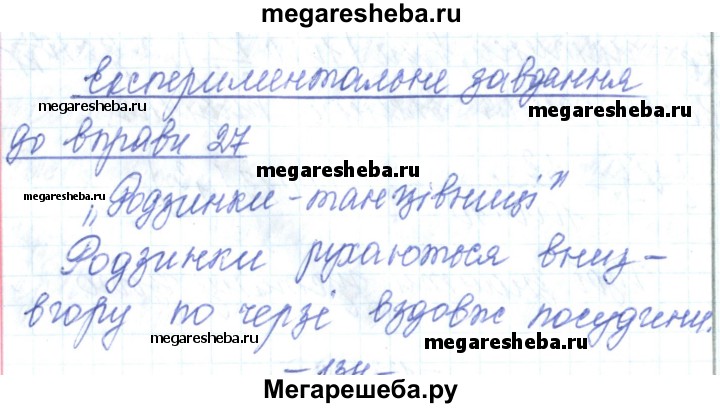 megaresheba.ru
експериментальне завдання
megaresheba.ru
megaresheba.ru
до вправи 27
megaresheba.ru
megaresheba.ru
„Родзинки-танцівниці"
Родзинки рухаються вниз-
вгору по черзі вздовж посудини.
megaresheba.ru
megaresheba.ru
-134-
Мегарешеба.ру